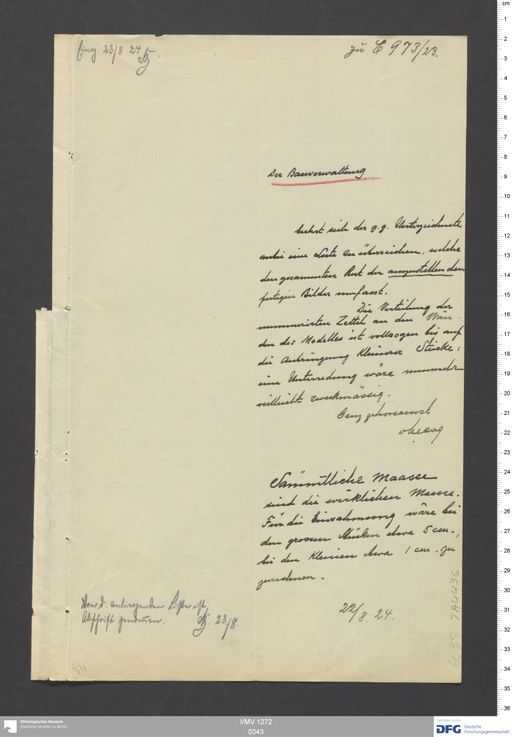 Eing 23/8 24
zu E 973/23.
Der Bauverwaltung
beehrt sich der g.g. Unterzeichnete
anbei eine Liste zu überreichen, welche
den gesammten Rest der auszustellenden
fertigen Bilder umfasst.
Die Verteilung der
nummerirten Zettel an den Wän-
den des Modelles ist vollzogen bis auf
die Anbringung kleinerer Stücke;
eine Unterredung wäre nunmehr
vielleicht zweckmässig.
Ganz gehorsamst
Sämmtliche Maasse
sind die wirklichen Masse.
Für die Einrahmung wäre bei
den grossen Stücken etwa 5 cm.,
bei den kleinen etwa 1 cm. zu
zurechnen.
22/8. 24.
Von d. anliegenden Liste ist
Abschrift genommen. 23/8
I/MV 1272
0343
Ethnologisches Museum
Staatliche Museen zu Berlin
DFG Deutsche
Forschungsgemeinschaft